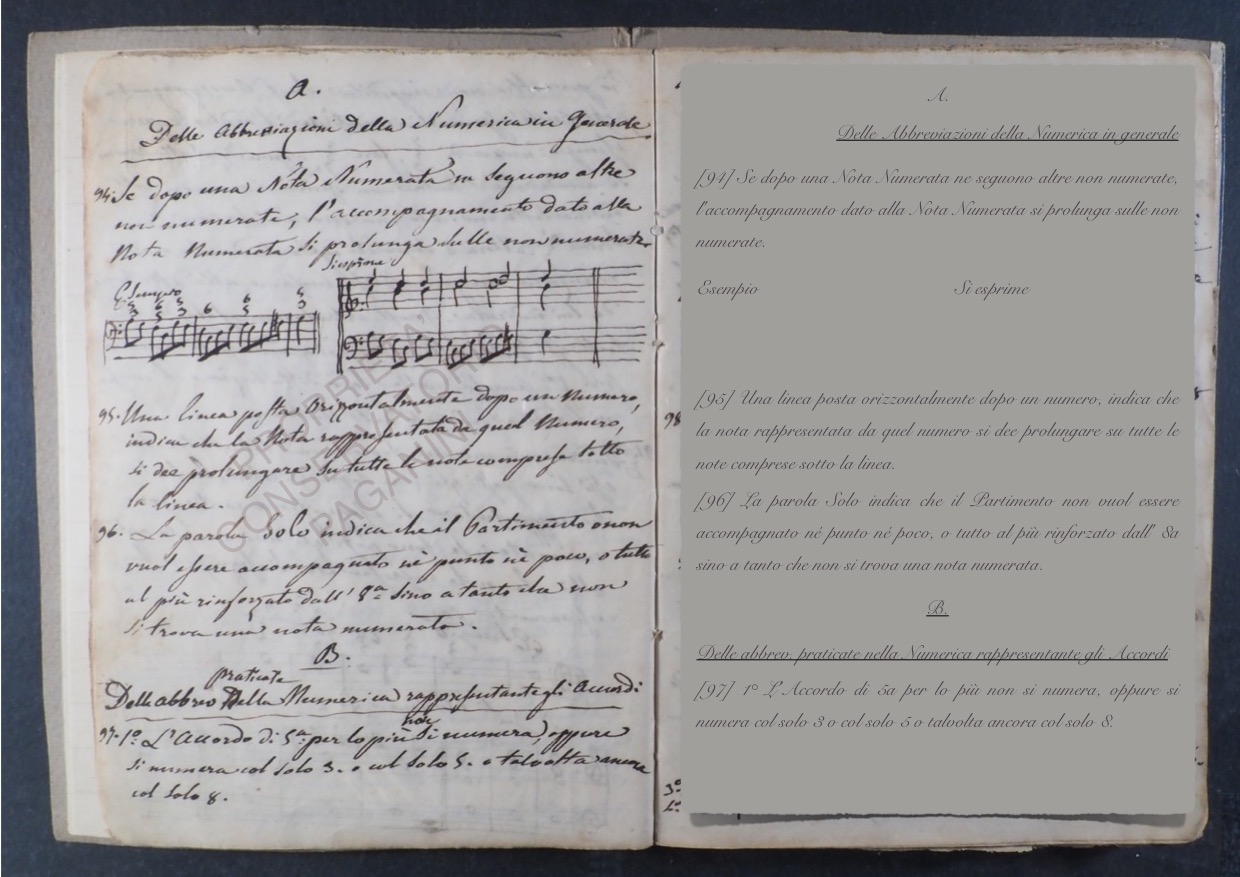 a.
Delle Abbreviazioni della Numerica in Generale
94. Se dopo una Nota Numerata ne seguono altre
non numerate, l'accompagnamento dato alla
Nota Numerata si prolunga sulle non numerate
Esempio
Si esprime
5 6 5 6 5
3 5 3 6 5 3
95. Una linea posta Orizzontalmente dopo un Numero,
indica che la Nota rappresentata da quel Numero,
si dee prolungare su tutte le note comprese sotto
la linea.
96. La parola Solo indica che il Partimento non
vuol essere accompagnato nè punto nè poco, o tutto
al più rinforzato dall' 8a sino a tanto che non
si trova una nota numerata.
B.
praticate
Delle abbrev. Nella Numerica rappresentante gli Accordi
non
97. 1o. L'Accordo di 5a: per lo più si numera, oppure
si numera col solo 3. o col solo 5. o talvolta ancora
col solo 8.
PROPRIETA'
CONSERVATORIO
PAGANINI
98
3o
A.
Delle Abbreviazioni della Numerica in generale
[94] Se dopo una Nota Numerata ne seguono altre non numerate,
l'accompagnamento dato alla Nota Numerata si prolunga sulle non
numerate.
Esempio Si esprime
[95] Una linea posta orizzontalmente dopo un numero, indica che
la nota rappresentata da quel numero si dee prolungare su tutte le
note comprese sotto la linea.
[96] La parola Solo indica che il Partimento non vuol essere
accompagnato né punto né poco, o tutto al più rinforzato dall' 8a
sino a tanto che non si trova una nota numerata.
B.
Delle abbrev. praticate nella Numerica rappresentante gli Accordi
[97] 1° L'Accordo di 5a per lo più non si numera, oppure si
numera col solo 3 o col solo 5 o talvolta ancora col solo 8.